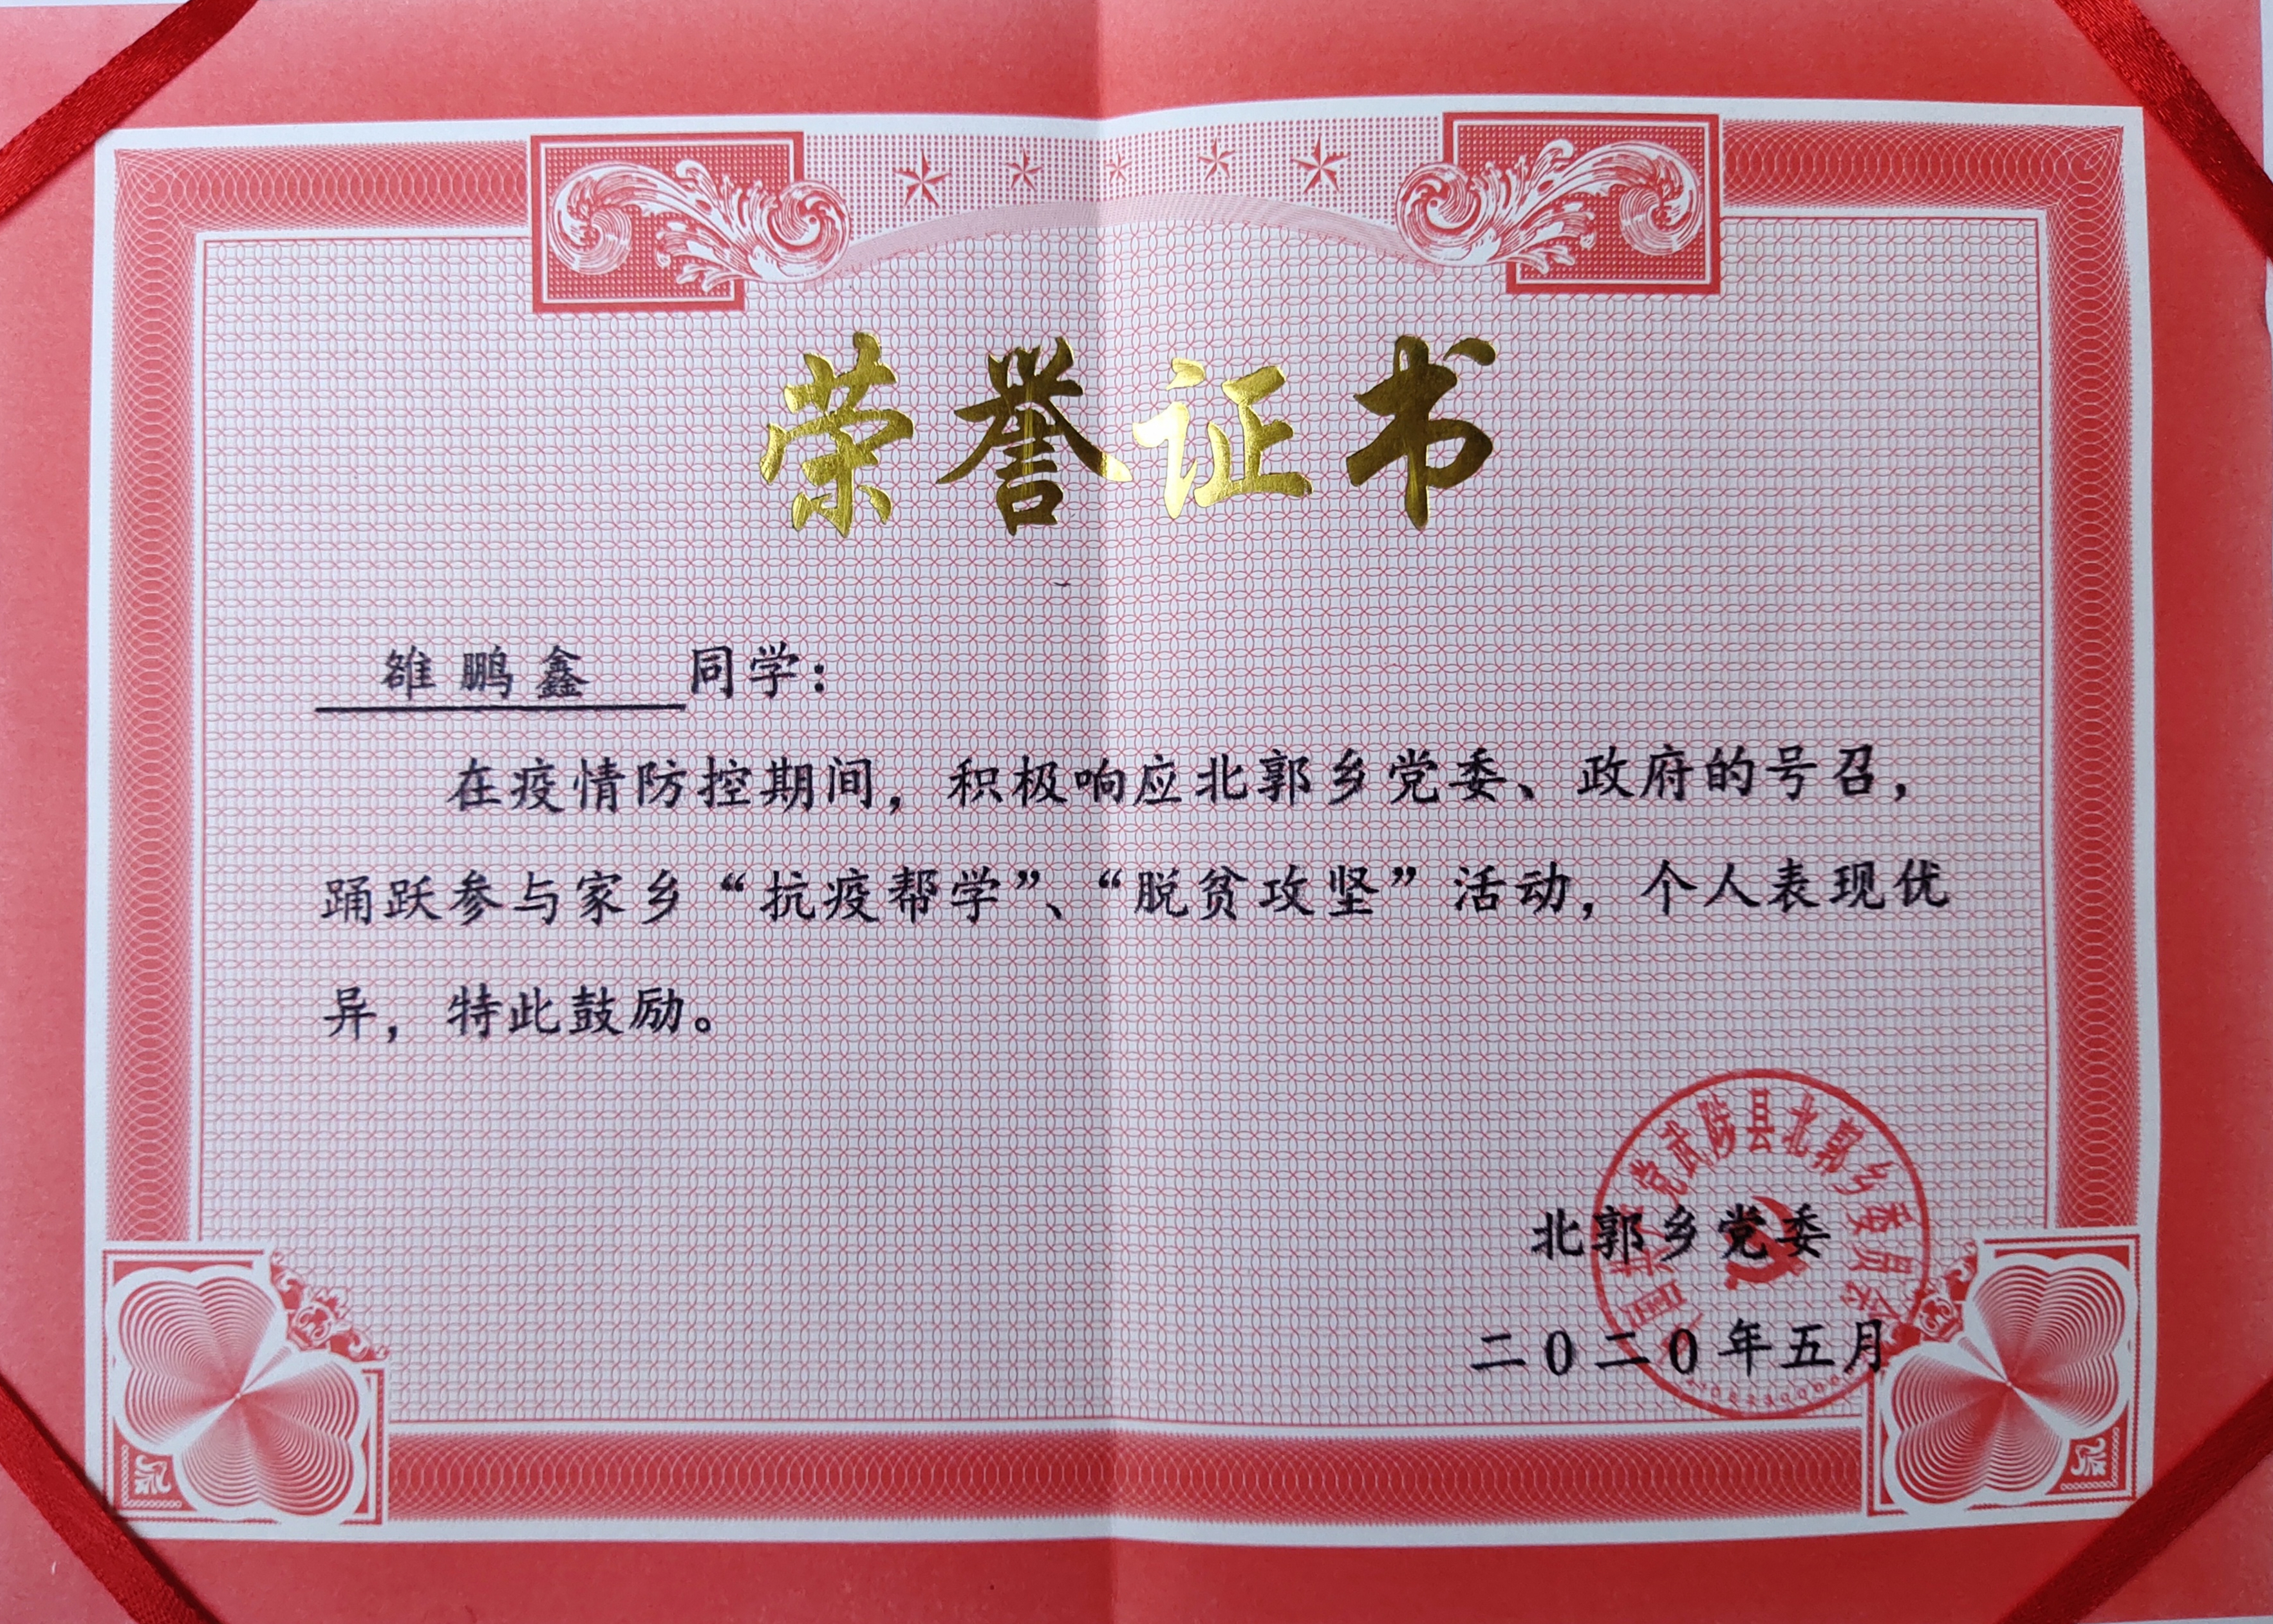 荣誉证书
雒鹏鑫 同学：
在疫情防控期间，积极响应北郭乡党委、政府的号召，
踊跃参与家乡“抗疫帮学”、“脱贫攻坚”活动，个人表现优
异，特此鼓励。
党武陟县北郭乡委员会
北郭乡党委
二0二0年五月